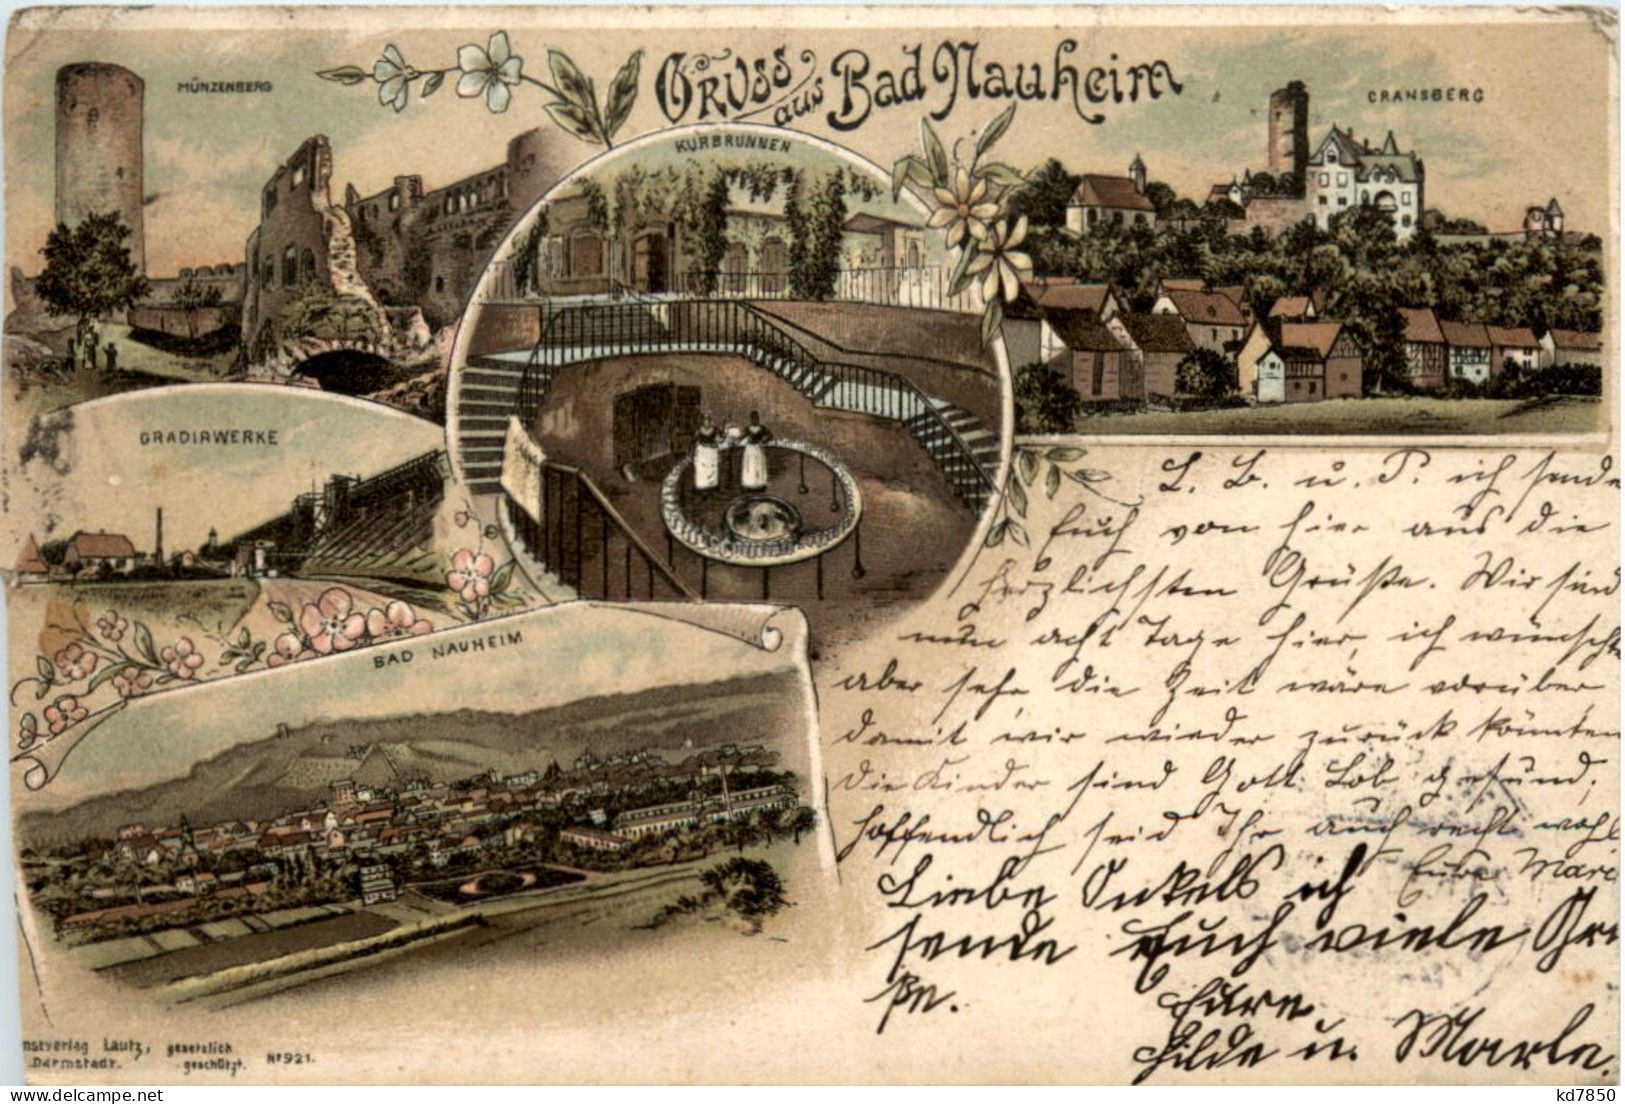 MÜNZENBERG
Gruss aus Bad Nauheim
KURBRUNNEN
CRANSBERG
GRADIRWERKE
BAD NAUHEIM
L. B. u. P. ich sende
Euch von hier aus die
herzlichsten Grüße. Wir sind
nun acht Tage hier, ich wünschte
aber sehr die Zeit wäre vorüber
damit wir wieder zurück könnten
die Kinder sind Gott Lob gesund,
hoffendlich seid Ihr auch recht wohl
Eure Marie
Liebe Onkels ich
sende Euch viele Grü
ße.
Eure
Hilde u. Marla.
nstverlag Lautz, gesetzlich
Darmstadt. geschützt. No 921.
kd7850